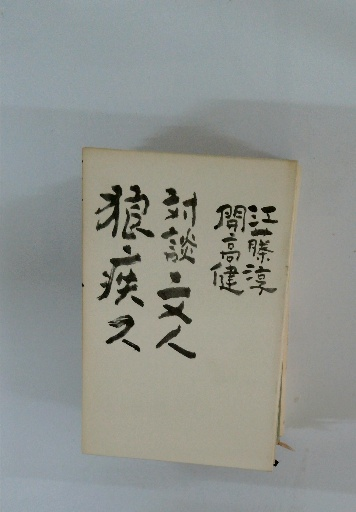 江藤淳
開高健
対談 文人
狼疾ス